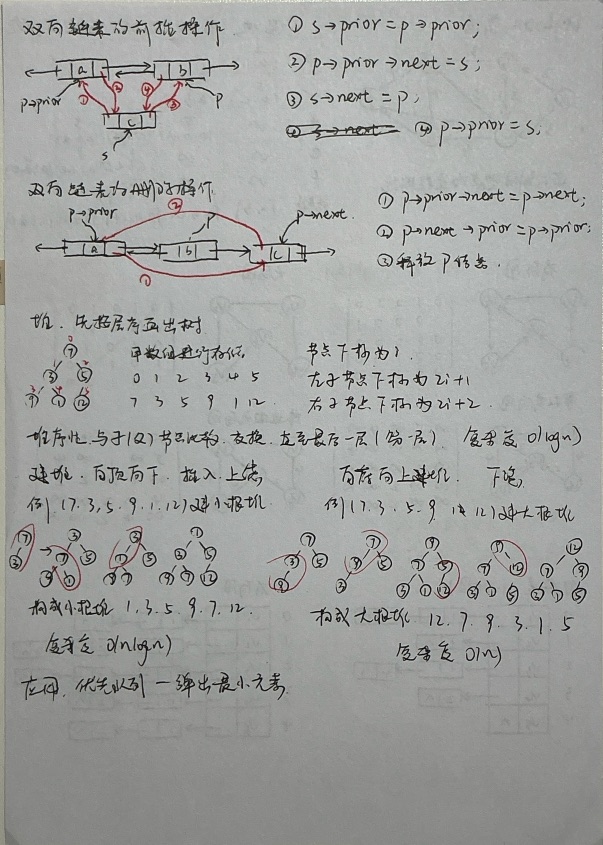 双向链表的前插操作
① s→prior = p→prior;
② p→prior→next = s;
③ s→next = p;
④ p→prior = s;
a b
p→prior p
c
s
双向链表的删除操作
① p→prior→next = p→next;
② p→next→prior = p→prior;
③ 释放p结点.
p→prior p p→next.
a b c
堆. 先按层序画出树
用数组进行存储 节点下标为i
0 1 2 3 4 5 左子节点下标为 2i+1
7 3 5 9 1 12 右子节点下标为 2i+2.
堆序性. 与子(父)节点比较. 交换. 直至最后一层(第一层). 复杂度 O(logn)
建堆. 自顶向下. 插入. 上滤 自底向上建堆. 下滤
例 (7.3.5.9.1.12) 建小根堆 例 (7.3.5.9.1.12) 建大根堆
构成小根堆 1.3.5.9.7.12. 构成大根堆 12.7.9.3.1.5
复杂度 O(nlogn) 复杂度 O(n)
应用. 优先队列 — 弹出最小元素.